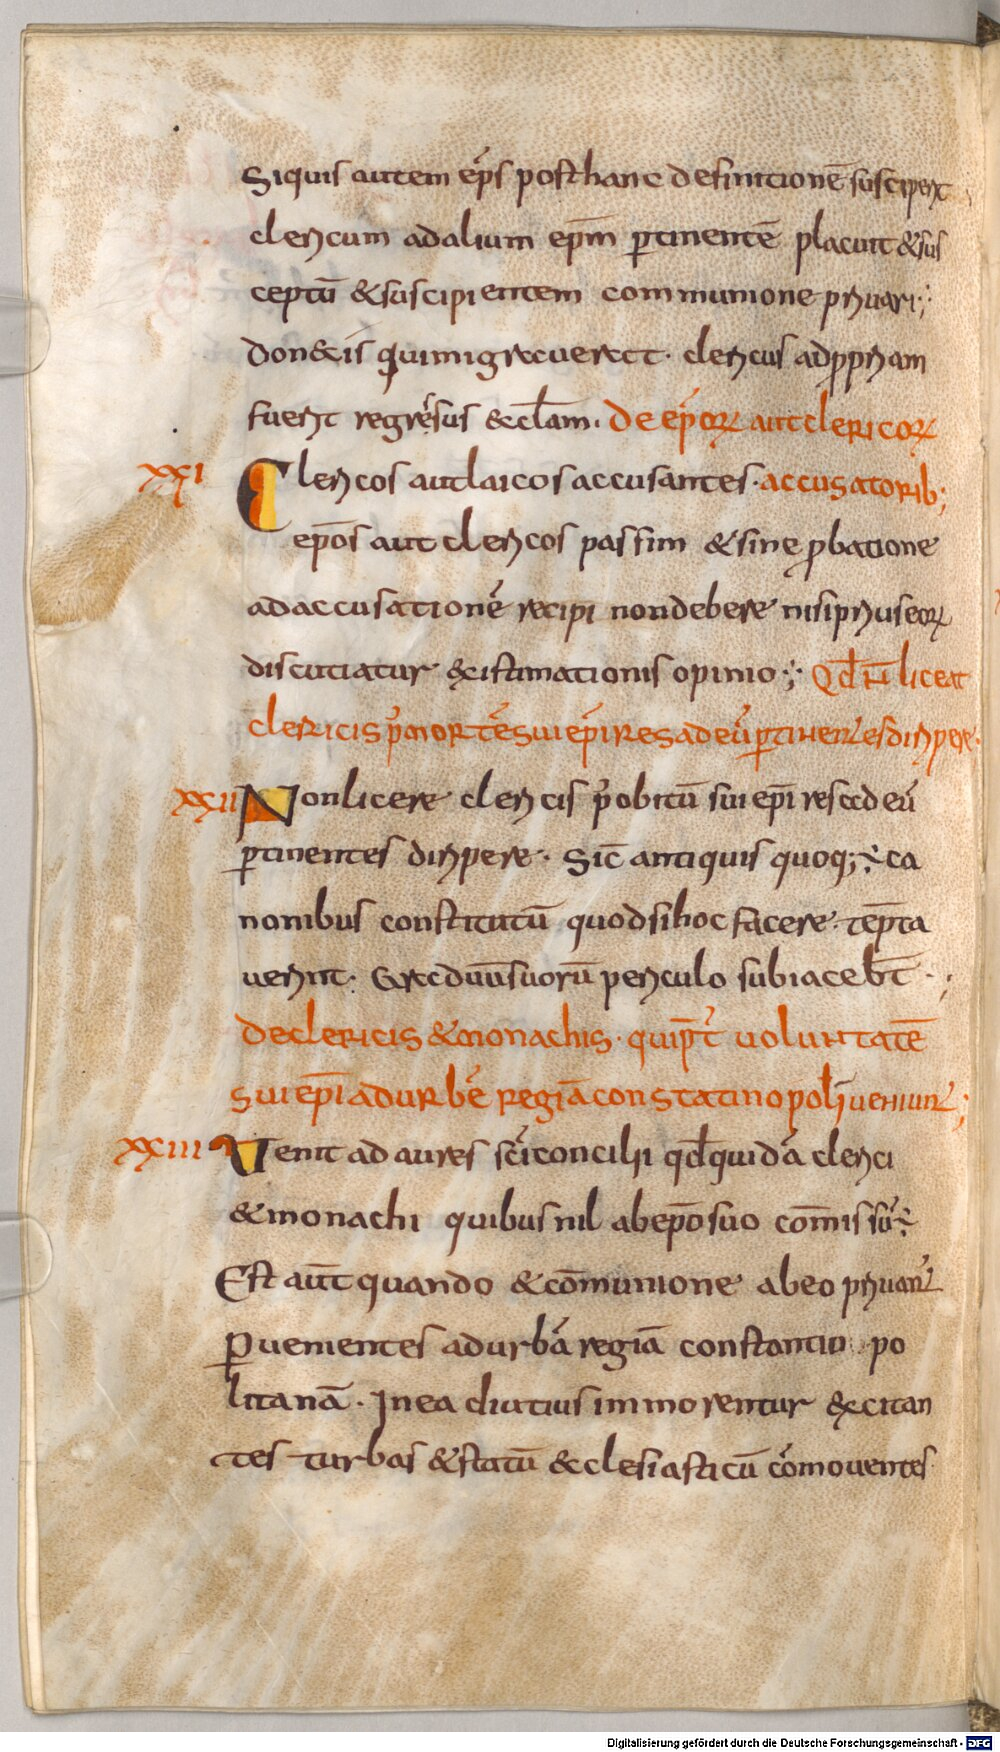 Siquis autem ep̄s posthanc definitionē susciperit
clericum adalium ep̄m ꝑtinentē placuit &sus
ceptū &suscipientem communione priuari;
don&is quimigrauerat· clericus adpꝓriam
fuerit regressus &cl̄am· De ep̄orꝝ aut clericorꝝ
XXI Clericos autlaicos accusantes· accusatorib;
ep̄os aut clericos passim &sine ꝓbatione
adaccusationē recipi nondebere nisipriuseorꝝ
discutiatur &istimationis opinio; Qd̄ N̄ liceat
clericis p̄ mortē sui ep̄i res adeū ꝑtinentes diripere·
XXII Nonlicere clericis p̄ obitū sui ep̄i res adeū
ꝑtinentes diripere· Sic̄ antiquis quoq; ÷ ca
nonibus constitutū quodsihoc facere· tēpta
uerint· Graduūsuorū periculo subiaceb̄t·
De clericis &monachis· quip̄t uoluntatē
sui ep̄i adurbē regiā constatinopoli ueniunt;
XXIII Venit ad aures sc̄i concilii qd̄ quidā clerici
&monachi quibus nil abep̄o suo cōmissū ÷
Est aūt quando &cōmunione abeo priuant̄
Ꝑuenientes adurbā regiā constantino po
litanā· Inea diutius immorentur &citan
tes turbas &statū &clesiasticū cōmouentes
Digitalisierung gefördert durch die Deutsche Forschungsgemeinschaft - DFG